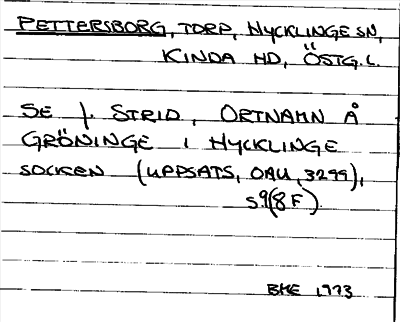 PETTERSBORG, TORP, HYCKLINGE SN,
KINDA HD, ÖSTG. L.
SE J. STRID, ORTNAMN Å
GRÖNINGE I HYCKLINGE
SOCKEN (UPPSATS, OAU, 3299),
S 9 (8 F).
BHE 1973